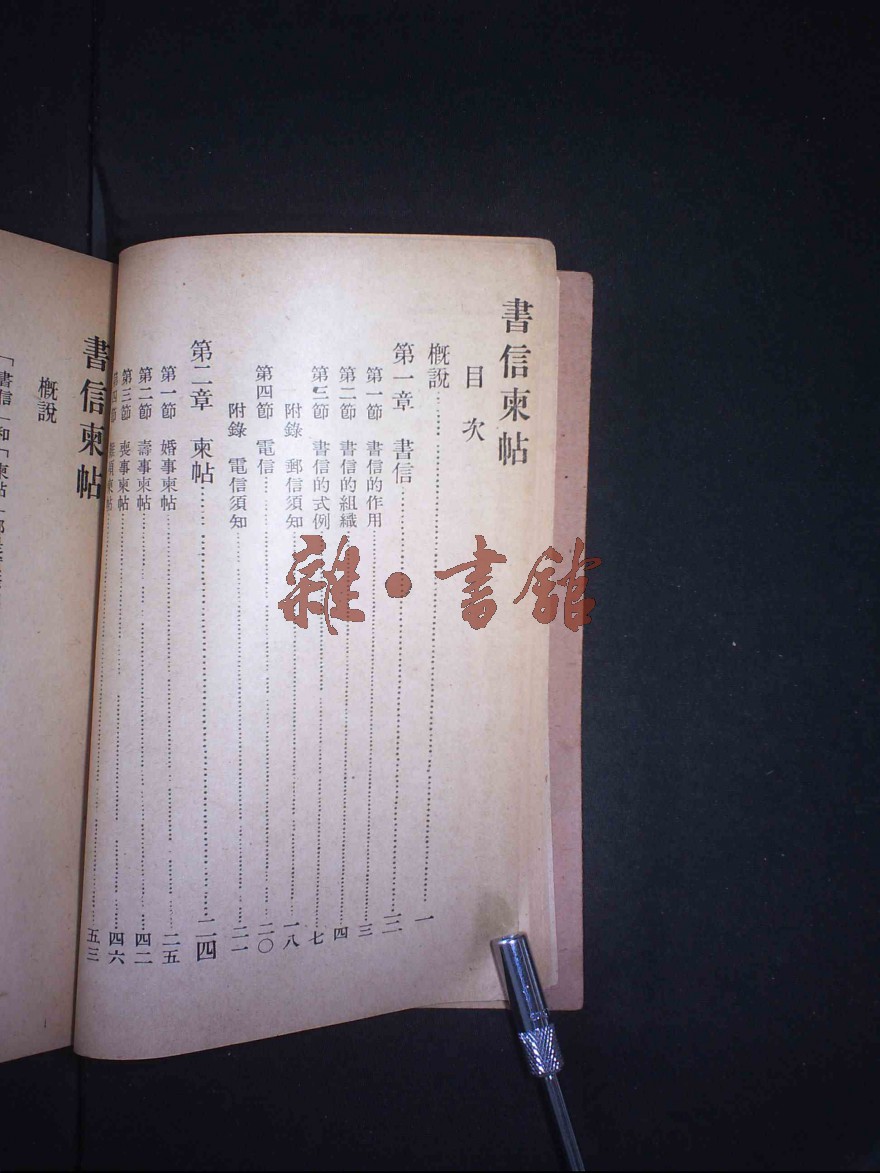 書信柬帖
目次
概說……一
第一章 書信……三
第一節 書信的作用……三
第二節 書信的組織……四
第三節 書信的式例……七
附錄 郵信須知……一八
第四節 電信……二〇
附錄 電信須知……二一
第二章 柬帖……二四
第一節 婚事柬帖……二五
第二節 壽事柬帖……四二
第三節 喪事柬帖……四六
第四節 柬帖……五三
書信柬帖
概說
「書信」和「柬帖」都
雜·書館